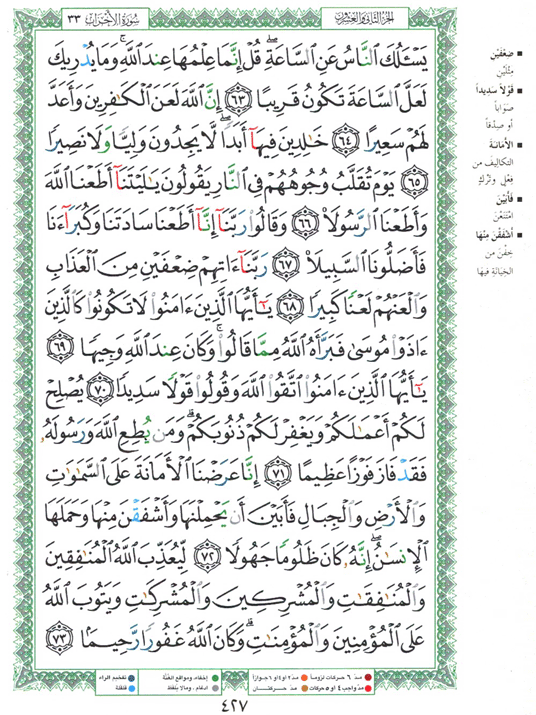 الجزء الثاني والعشرون
سورة الأحزاب ٣٣
يَسْـَٔلُكَ ٱلنَّاسُ عَنِ ٱلسَّاعَةِۖ قُلْ إِنَّمَا عِلْمُهَا عِندَ ٱللَّهِۚ وَمَا يُدْرِيكَ
لَعَلَّ ٱلسَّاعَةَ تَكُونُ قَرِيبًا ٦٣ إِنَّ ٱللَّهَ لَعَنَ ٱلْكَـٰفِرِينَ وَأَعَدَّ
لَهُمْ سَعِيرًا ٦٤ خَـٰلِدِينَ فِيهَآ أَبَدًاۖ لَّا يَجِدُونَ وَلِيًّا وَلَا نَصِيرًا
٦٥ يَوْمَ تُقَلَّبُ وُجُوهُهُمْ فِى ٱلنَّارِ يَقُولُونَ يَـٰلَيْتَنَآ أَطَعْنَا ٱللَّهَ
وَأَطَعْنَا ٱلرَّسُولَا۠ ٦٦ وَقَالُوا۟ رَبَّنَآ إِنَّآ أَطَعْنَا سَادَتَنَا وَكُبَرَآءَنَا
فَأَضَلُّونَا ٱلسَّبِيلَا۠ ٦٧ رَبَّنَآ ءَاتِهِمْ ضِعْفَيْنِ مِنَ ٱلْعَذَابِ
وَٱلْعَنْهُمْ لَعْنًا كَبِيرًا ٦٨ يَـٰٓأَيُّهَا ٱلَّذِينَ ءَامَنُوا۟ لَا تَكُونُوا۟ كَٱلَّذِينَ
ءَاذَوْا۟ مُوسَىٰ فَبَرَّأَهُ ٱللَّهُ مِمَّا قَالُوا۟ۚ وَكَانَ عِندَ ٱللَّهِ وَجِيهًا ٦٩
يَـٰٓأَيُّهَا ٱلَّذِينَ ءَامَنُوا۟ ٱتَّقُوا۟ ٱللَّهَ وَقُولُوا۟ قَوْلًا سَدِيدًا ٧٠ يُصْلِحْ
لَكُمْ أَعْمَـٰلَكُمْ وَيَغْفِرْ لَكُمْ ذُنُوبَكُمْۗ وَمَن يُطِعِ ٱللَّهَ وَرَسُولَهُۥ
فَقَدْ فَازَ فَوْزًا عَظِيمًا ٧١ إِنَّا عَرَضْنَا ٱلْأَمَانَةَ عَلَى ٱلسَّمَـٰوَٰتِ
وَٱلْأَرْضِ وَٱلْجِبَالِ فَأَبَيْنَ أَن يَحْمِلْنَهَا وَأَشْفَقْنَ مِنْهَا وَحَمَلَهَا
ٱلْإِنسَـٰنُۖ إِنَّهُۥ كَانَ ظَلُومًا جَهُولًا ٧٢ لِّيُعَذِّبَ ٱللَّهُ ٱلْمُنَـٰفِقِينَ
وَٱلْمُنَـٰفِقَـٰتِ وَٱلْمُشْرِكِينَ وَٱلْمُشْرِكَـٰتِ وَيَتُوبَ ٱللَّهُ
عَلَى ٱلْمُؤْمِنِينَ وَٱلْمُؤْمِنَـٰتِۗ وَكَانَ ٱللَّهُ غَفُورًا رَّحِيمًۢا ٧٣
■ ضِعْفَيْنِ
مِثْلَيْن
■ قَوْلًا سَدِيدًا
صَوَابًا
أو صِدْقًا
■ الأَمَانَةَ
التكاليفَ من
فِعْلٍ وتَرْكٍ
■ فَأَبَيْنَ
امْتَنَعْنَ
■ أَشْفَقْنَ مِنْهَا
خِفْنَ من
الخيانَةِ فيها
مدّ ٦ حركات لزوماً مدّ ٢ أو ٤ أو ٦ جوازاً
مدّ واجب ٤ أو ٥ حركات مدّ حركتان
إخفاء، ومواقع الغنّة تفخيم الراء
ادغام، وما لا يلفظ قلقلة
٤٢٧